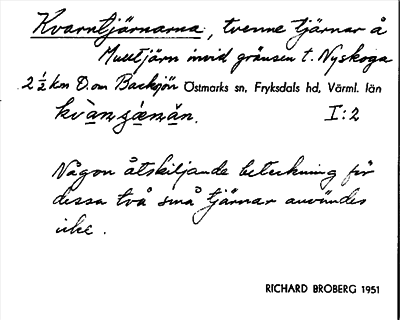 Kvarntjärnarna, tvenne tjärnar å
Muutjärn invid gränsen t. Nyskoga
2 ½ km O. om Backsjön Östmarks sn, Fryksdals hd, Värml. län
I:2
Någon åtskiljande beteckning för
dessa två små tjärnar användes
icke.
RICHARD BROBERG 1951